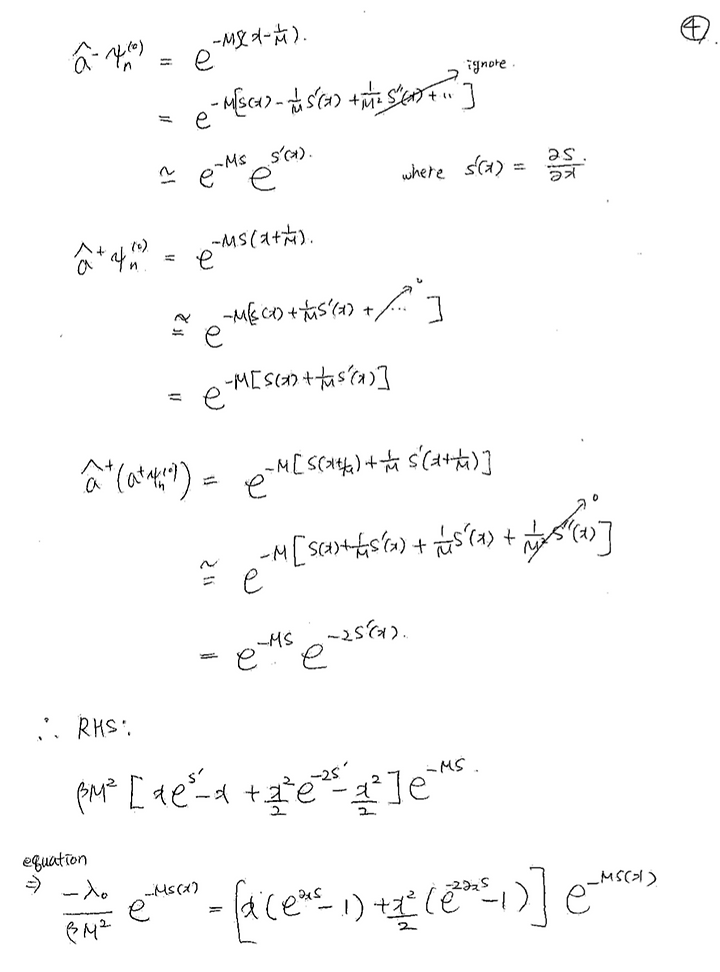 ④.
â⁻ ψₙ⁽⁰⁾ = e^{-MS(x-1/M)}.
= e^{-M[S(x) - 1/M S'(x) + 1/M² S''(x) + ..]} ignore.
≃ e^{-MS} e^{S'(x)}. where S'(x) = ∂S/∂x.
â⁺ ψₙ⁽⁰⁾ = e^{-MS(x+1/M)}.
≅ e^{-M[S(x) + 1/M S'(x) + ...]} 0
= e^{-M[S(x) + 1/M S'(x)]}
â⁺(a⁺ψₙ⁽⁰⁾) = e^{-M[S(x+1/M) + 1/M S'(x+1/M)]}
≅ e^{-M[S(x) + 1/M S'(x) + 1/M S'(x) + 1/M² S''(x)]} 0
= e^{-MS} e^{-2S'(x)}.
∴ RHS:
βM² [xe^{S'} - x + x²/2 e^{-2S'} - x²/2] e^{-MS}.
equation
⇒ -λ₀/βM² e^{-MS(x)} = [x(e^{∂xS} - 1) + x²/2 (e^{-2∂xS} - 1)] e^{-MS(x)}